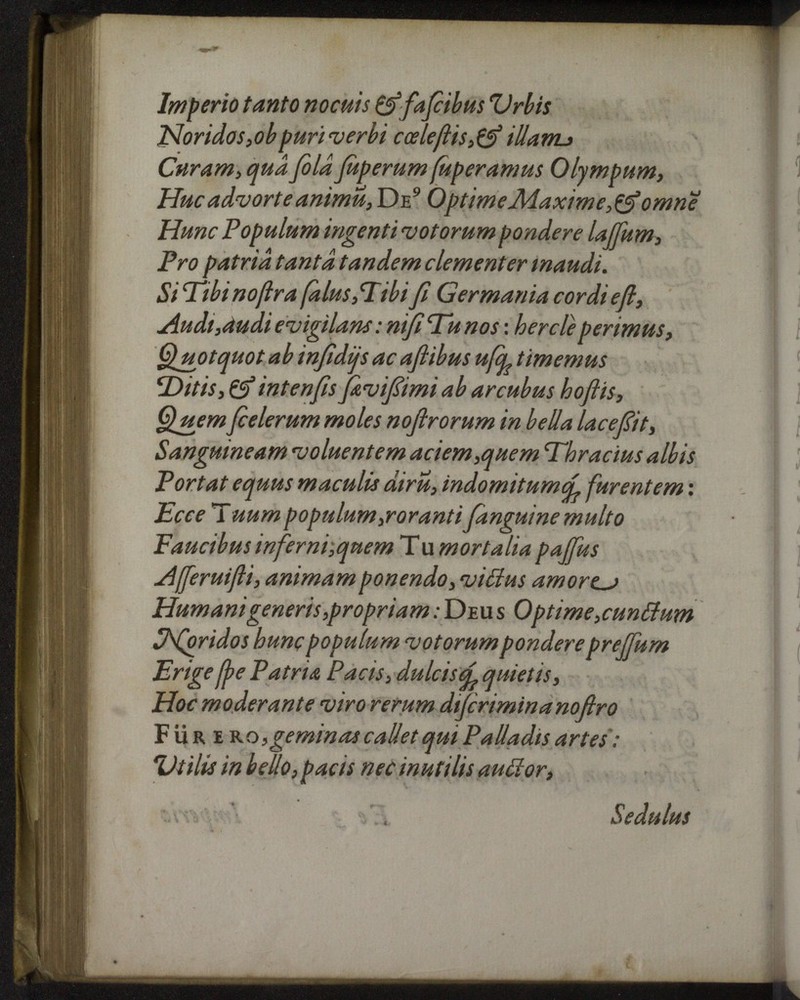 Imperio tanto nocuis & faſcibus Urbis
Noridos, ob puri verbi cœleſtis, & illam
Curam, quâ ſolâ ſuperum ſuperamus Olympum,
Huc advorte animū, DEꝰ Optime Maxime, & omnē
Hunc Populum ingenti votorum pondere laſſum,
Pro patriâ tantâ tandem clementer inaudi.
Si Tibi noſtra ſalus, Tibi ſi Germania cordi eſt,
Audi, audi evigilans: niſi Tu nos: herclè perimus,
Quotquot ab inſidijs ac aſtibus uſq; timemus
Ditis, & intenſis ſæviſſimi ab arcubus hoſtis,
Quem ſcelerum moles noſtrorum in bella laceſſit,
Sanguineam voluentem aciem, quem Thracius albis
Portat equus maculis dirū, indomitumq; furentem:
Ecce Tuum populum, roranti ſanguine multo
Faucibus inferni; quem Tu mortalia paſſus
Aſſeruiſti, animam ponendo, victus amore
Humani generis, propriam: DEUS Optime, cunctum
Noridos hunc populum votorum pondere preſſum
Erige ſpe Patriæ Pacis, dulcisq; quietis,
Hoc moderante viro rerum diſcrimina noſtro
FÜRERO, geminas callet qui Palladis artes:
Utilis in bello, pacis nec inutilis auctor,
Sedulus